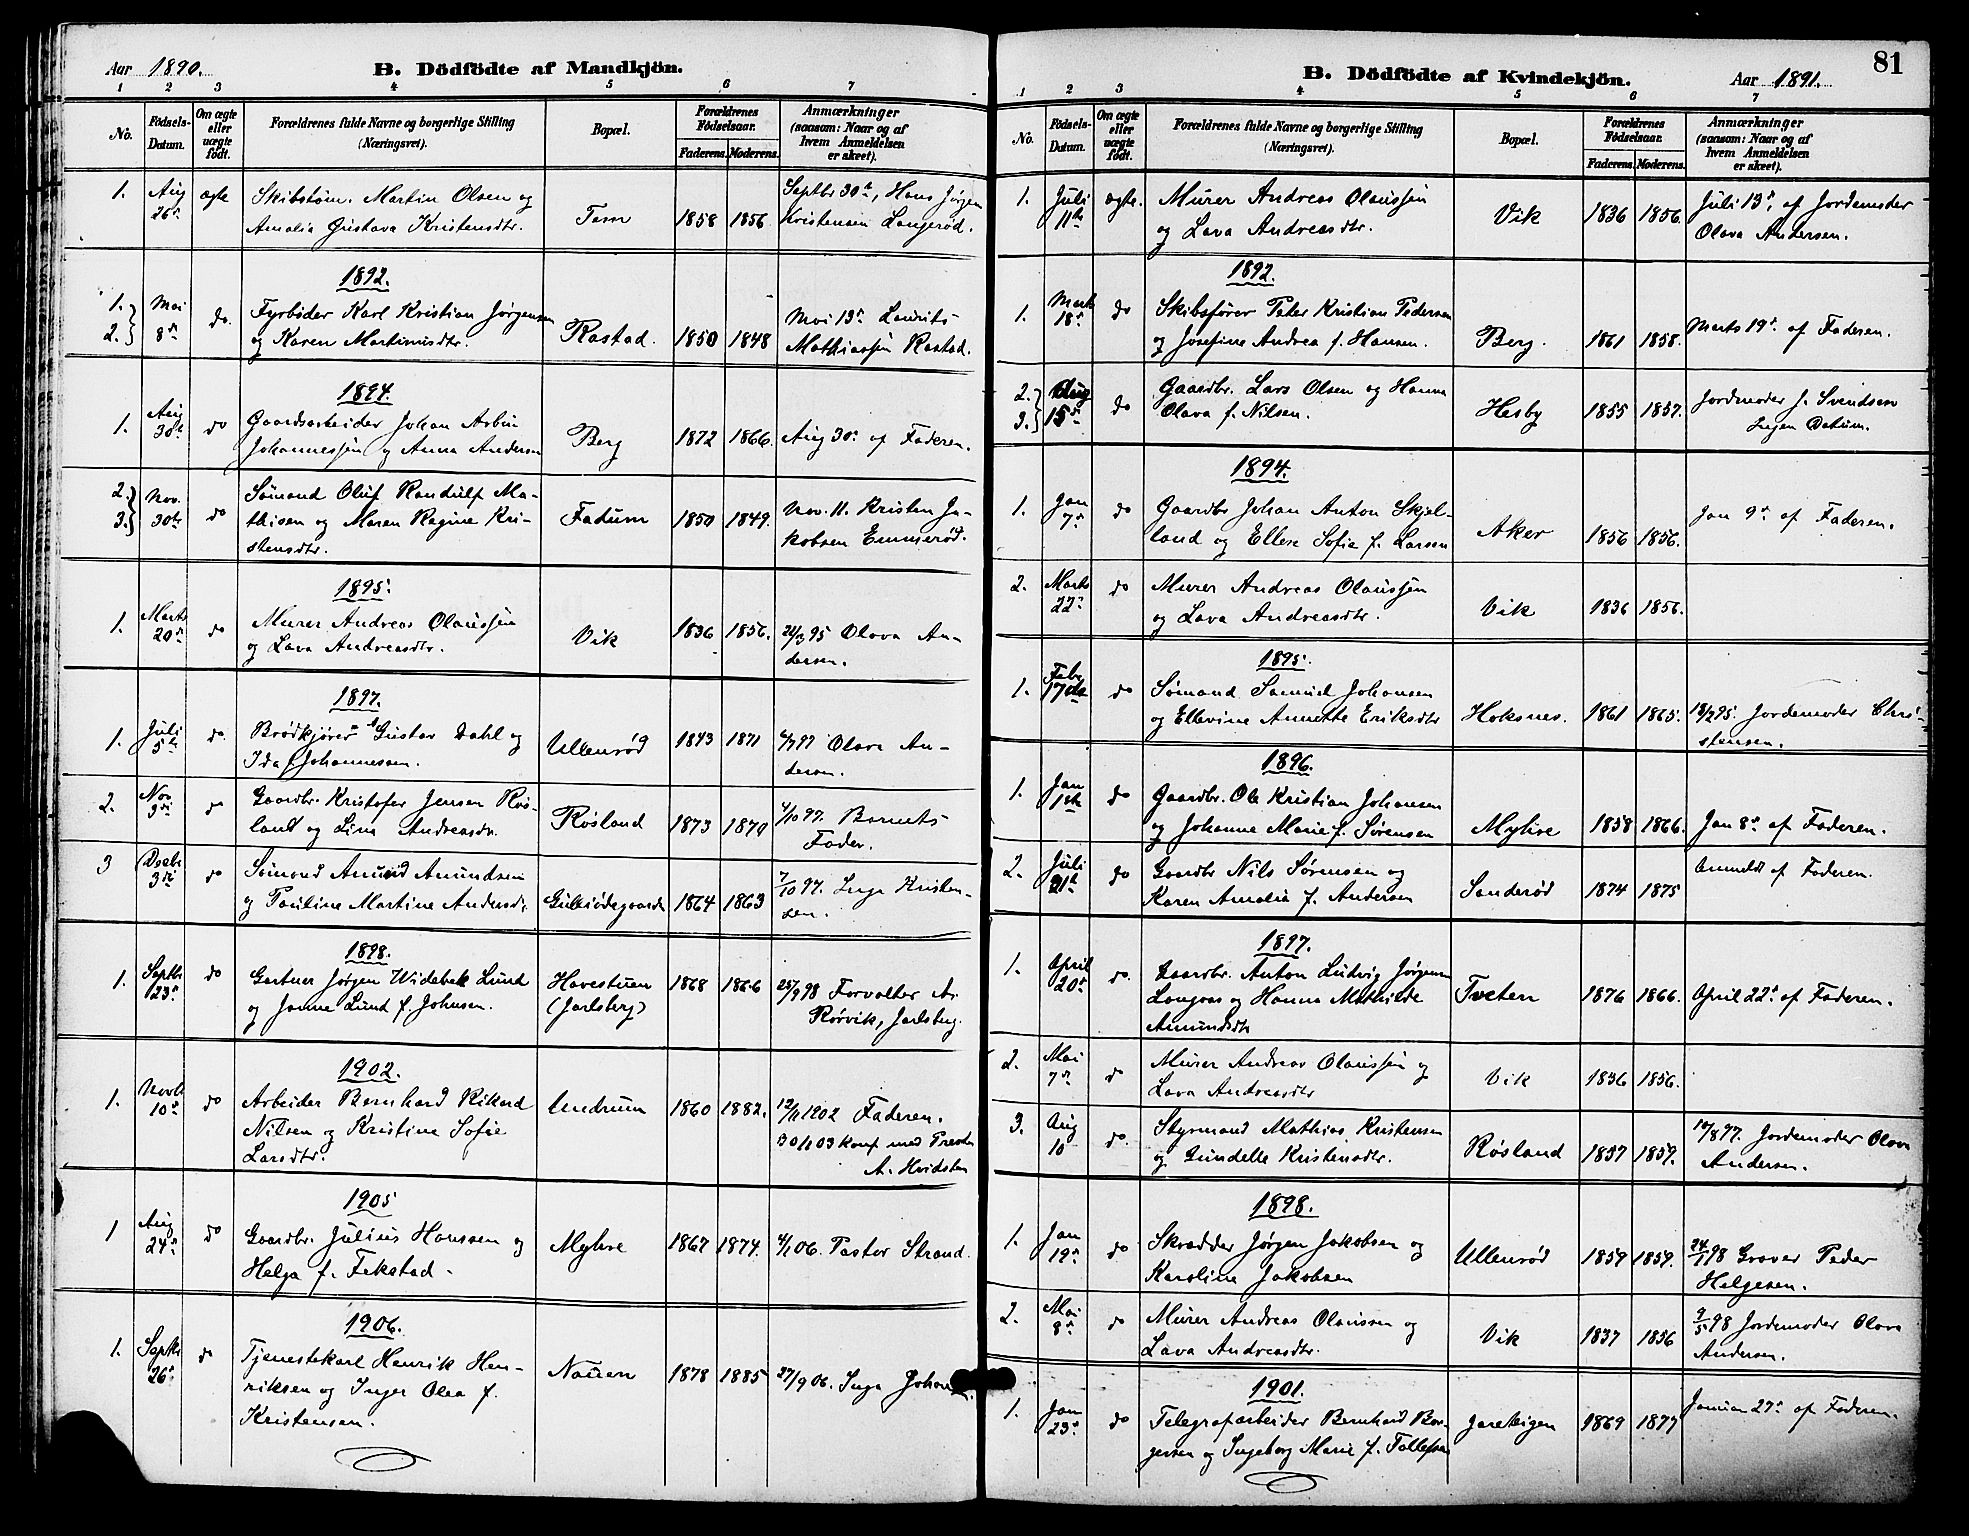 Aar 1890.
B. Dödfödte af Mandkjön.
1 2 3 4 5 6 7
No.
Födsels-Datum.
Om ægte eller uægte födt.
Forældrenes fulde Navne og borgerlige Stilling (Næringsvei).
Bopæl.
Forældrenes Födselsaar.
Faderens. Moderens.
Anmærkninger (saasom: Naar og af hvem Anmeldelsen er skeet).
1. Aug 26 ægte Skibstøm. Martin Olsen og Amalia Gustava Kristensdtr. Tem 1858 1856 Septbr 30te, Hans Jørgen Kristensen Langerød.
1892.
1. 2. Mai 8de do. Fyrbøder Karl Kristian Jørgensen og Karen Martinusdtr. Rastad. 1850 1848 Mai 13de Laurits Mathiassen Rastad.
1894.
1. Aug 30te do Gaardsarbeider Johan Arbin Johannessen og Anna Andersen Berg 1872 1866. Aug 30 af Faderen.
2. 3. Nov. 30te do Sømand Oluf Randulf Ma-
thisen og Maren Regine Kri-
stensdtr. Fadum 1850 1849. Nov. 11. Kristen Ja-
kobsen Emmerød.
1895.
1. Marts 20 do Murer Andreas Olaussen og Lava Andreasdtr. Vik 1836 1856. 21/3 95 Olava An-
dersen.
1897.
1. Juli 5te do. Brødkjører Gustav Dahl og Ida f Johannessen. Ullenrød 1843 1871 6/7 97 Olava An-
dersen.
2. Nov 3di do Gaardbr. Kristofer Jensen Røs-
land og Lina Andreasdr. Røsland 1873 1870 4/10 97. Barnets Fader.
3 Decbr 3di do Sømand Amund Amundsen og Pauline Martine Andersdr. 1864 1863 7/10 97. Inga Kristen-
sen.
1898.
1. Septbr 23 do Gartner Jørgen Widebek Lund og Janne Lund f. Johnsen. Havestuen (Jarlsberg) 1868 1866 25/9 98 Forvalter A. Rørvik, Jarlsberg.
1902.
1. Novb 10 do Arbeider Bernhard Rikard Nilsen og Kristine Sofie Larsdtr. Undrum 1860 1882. 12/11 1902 Faderen.
30/1 03 konf med Presten A. Hvidsten
1905
1 Aug 24 do Gaardbr. Julius Hanssen og Helga f. Fekstad. Myhre 1867 1874. 4/1 06. Pastor Strand.
1906.
1. Septbr 26 do Tjenestekarl Henrik Hen-
riksen og Inger Olea f. Kristensen. Nauen 1878 1885 27/9 06. Inga
81
B. Dödfödte af Kvindekjön.
Aar 1891.
1 2 3 4 5 6 7
No.
Födsels-Datum.
Om ægte eller uægte födt.
Forældrenes fulde Navne og borgerlige Stilling (Næringsvei).
Bopæl.
Forældrenes Födselsaar.
Faderens. Moderens.
Anmærkninger (saasom: Naar og af hvem Anmeldelsen er skeet).
1. Juli 11te ægte. Murer Andreas Olaussen og Lava Andreasdtr. Vik 1836 1856. Juli 13, af Jordemoder Olava Andersen.
1892.
1. Marts 18 do Skibsfører Peter Kristian Pedersen og Josefine Andrea f. Hansen. Berg. 1861 1858. Marts 19 af Faderen.
2. 3. Aug 15 do Gaardbr. Lars Olsen og Hanna Olava f. Nilsen. Hesby 1855 1857. Jordemoder J. Svendsen Ingen Datum.
1894.
1. Jan 7 do Gaardbr Johan Anton Skjel-
land og Ellen Sofie f. Larsen Aker 1856 1856. Jan 9 af Faderen.
2. Marts 22 do Murer Andreas Olaussen og Lava Andreasdtr. Vik 1836 1856.
1895.
1. Febr 17de do Sømand Samuel Johansen og Ellevine Annette Eriksdtr Hoksnes. 1861 1865. 18/2 95. Jordemoder Chri-
stensen.
1896.
1. Jan 1ste do Gaardbr. Ole Kristian Johansen og Johanne Marie f. Sørensen Myhre 1858 1866. Jan 8 af Faderen.
2. Juli 21 do Gaardbr Nils Sørensen og Karen Amalia f. Andersen Sanderød 1874 1875 Anmeldt af Faderen.
1897.
1. April 20 do. Gaardbr. Anton Ludvig Jørgensen og Hanna Mathilde Amundsdtr Tveten 1876 1866. April 22 af Faderen.
2. Mai 7 do Murer Andreas Olaussen og Lava Andreasdtr Vik 1836 1856.
3. Aug 10 do. Styrmand Mathias Kristensen og Gundelle Kristensdtr. Røsland 1837 1859. 10/8 97. Jordemoder Olava Andersen.
1898.
1. Jan 19 do Skrædder Jørgen Jakobsen og Karoline Jakobsen Ullenrød 1859 1859. 24/1 98 Graver Peder Helgesen.
2. Mai 8 do Murer Andreas Olaussen og Lava Andreasdtr. Vik 1837 1856 9/5 98 Jordemoder Olava Andersen.
1901.
1. Jan 23 do Telegrafarbeider Bernhard Bør-
gersen og Ingeborg Marie f. Tollefsen Jareteigen 1869 1877 Januar 27 af Faderen.